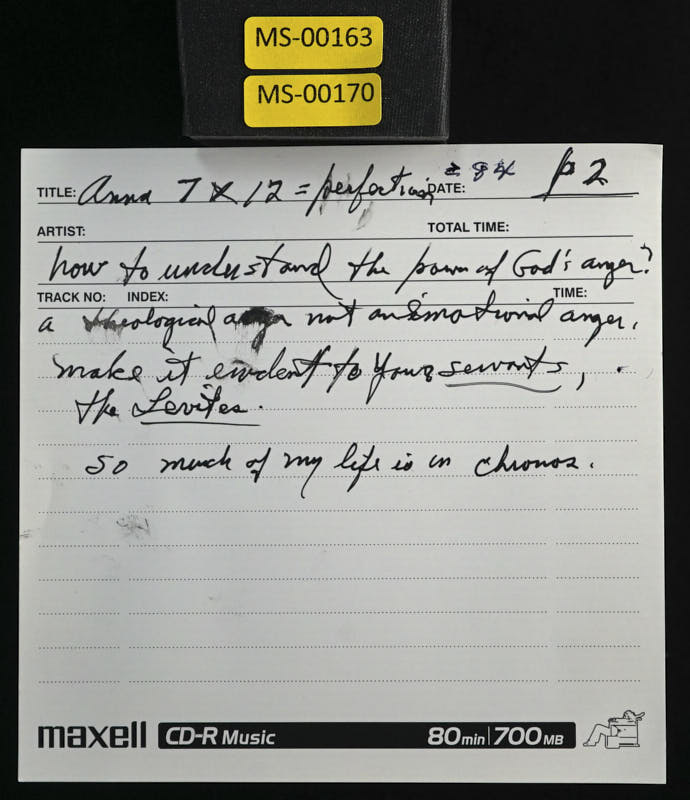 MS-00163
MS-00170
TITLE: Anna 7 x 12 = perfection DATE: = 84 p 2
ARTIST: TOTAL TIME:
how to understand the power of God's anger?
TRACK NO: INDEX: TIME:
a theological anger not an emotional anger.
make it evident to your servants,
the Levites.
So much of my life is in chronos.
maxell CD-R Music 80min 700MB